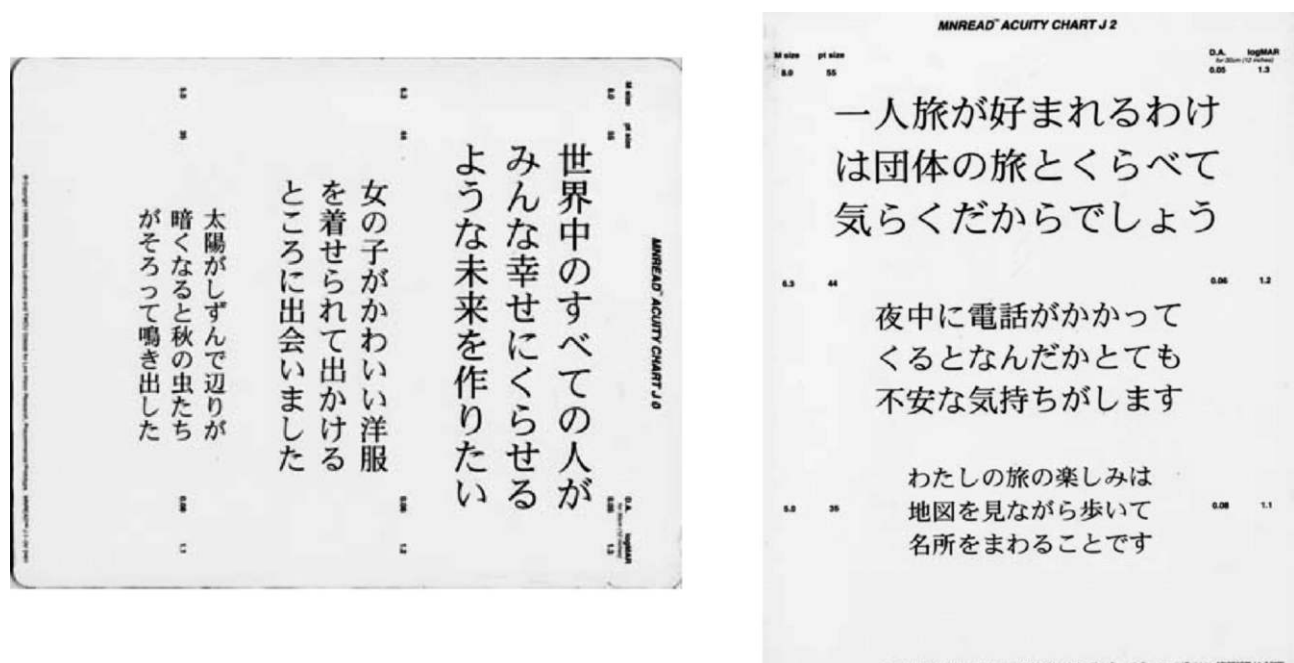 MNREAD™ ACUITY CHART J
M size pt size
D.A. logMAR
for 30cm (12 inches)
8.0 55 0.05 1.3
世界中のすべての人が
みんな幸せにくらせる
ような未来を作りたい
6.3 44 0.06 1.2
女の子がかわいい洋服
を着せられて出かける
ところに出会いました
5.0 35 0.08 1.1
太陽がしずんで辺りが
暗くなると秋の虫たち
がそろって鳴き出した
MNREAD™ ACUITY CHART J 2
M size pt size
D.A. logMAR
for 30cm (12 inches)
8.0 55 0.05 1.3
一人旅が好まれるわけ
は団体の旅とくらべて
気らくだからでしょう
6.3 44 0.06 1.2
夜中に電話がかかって
くるとなんだかとても
不安な気持ちがします
5.0 35 0.08 1.1
わたしの旅の楽しみは
地図を見ながら歩いて
名所をまわることです